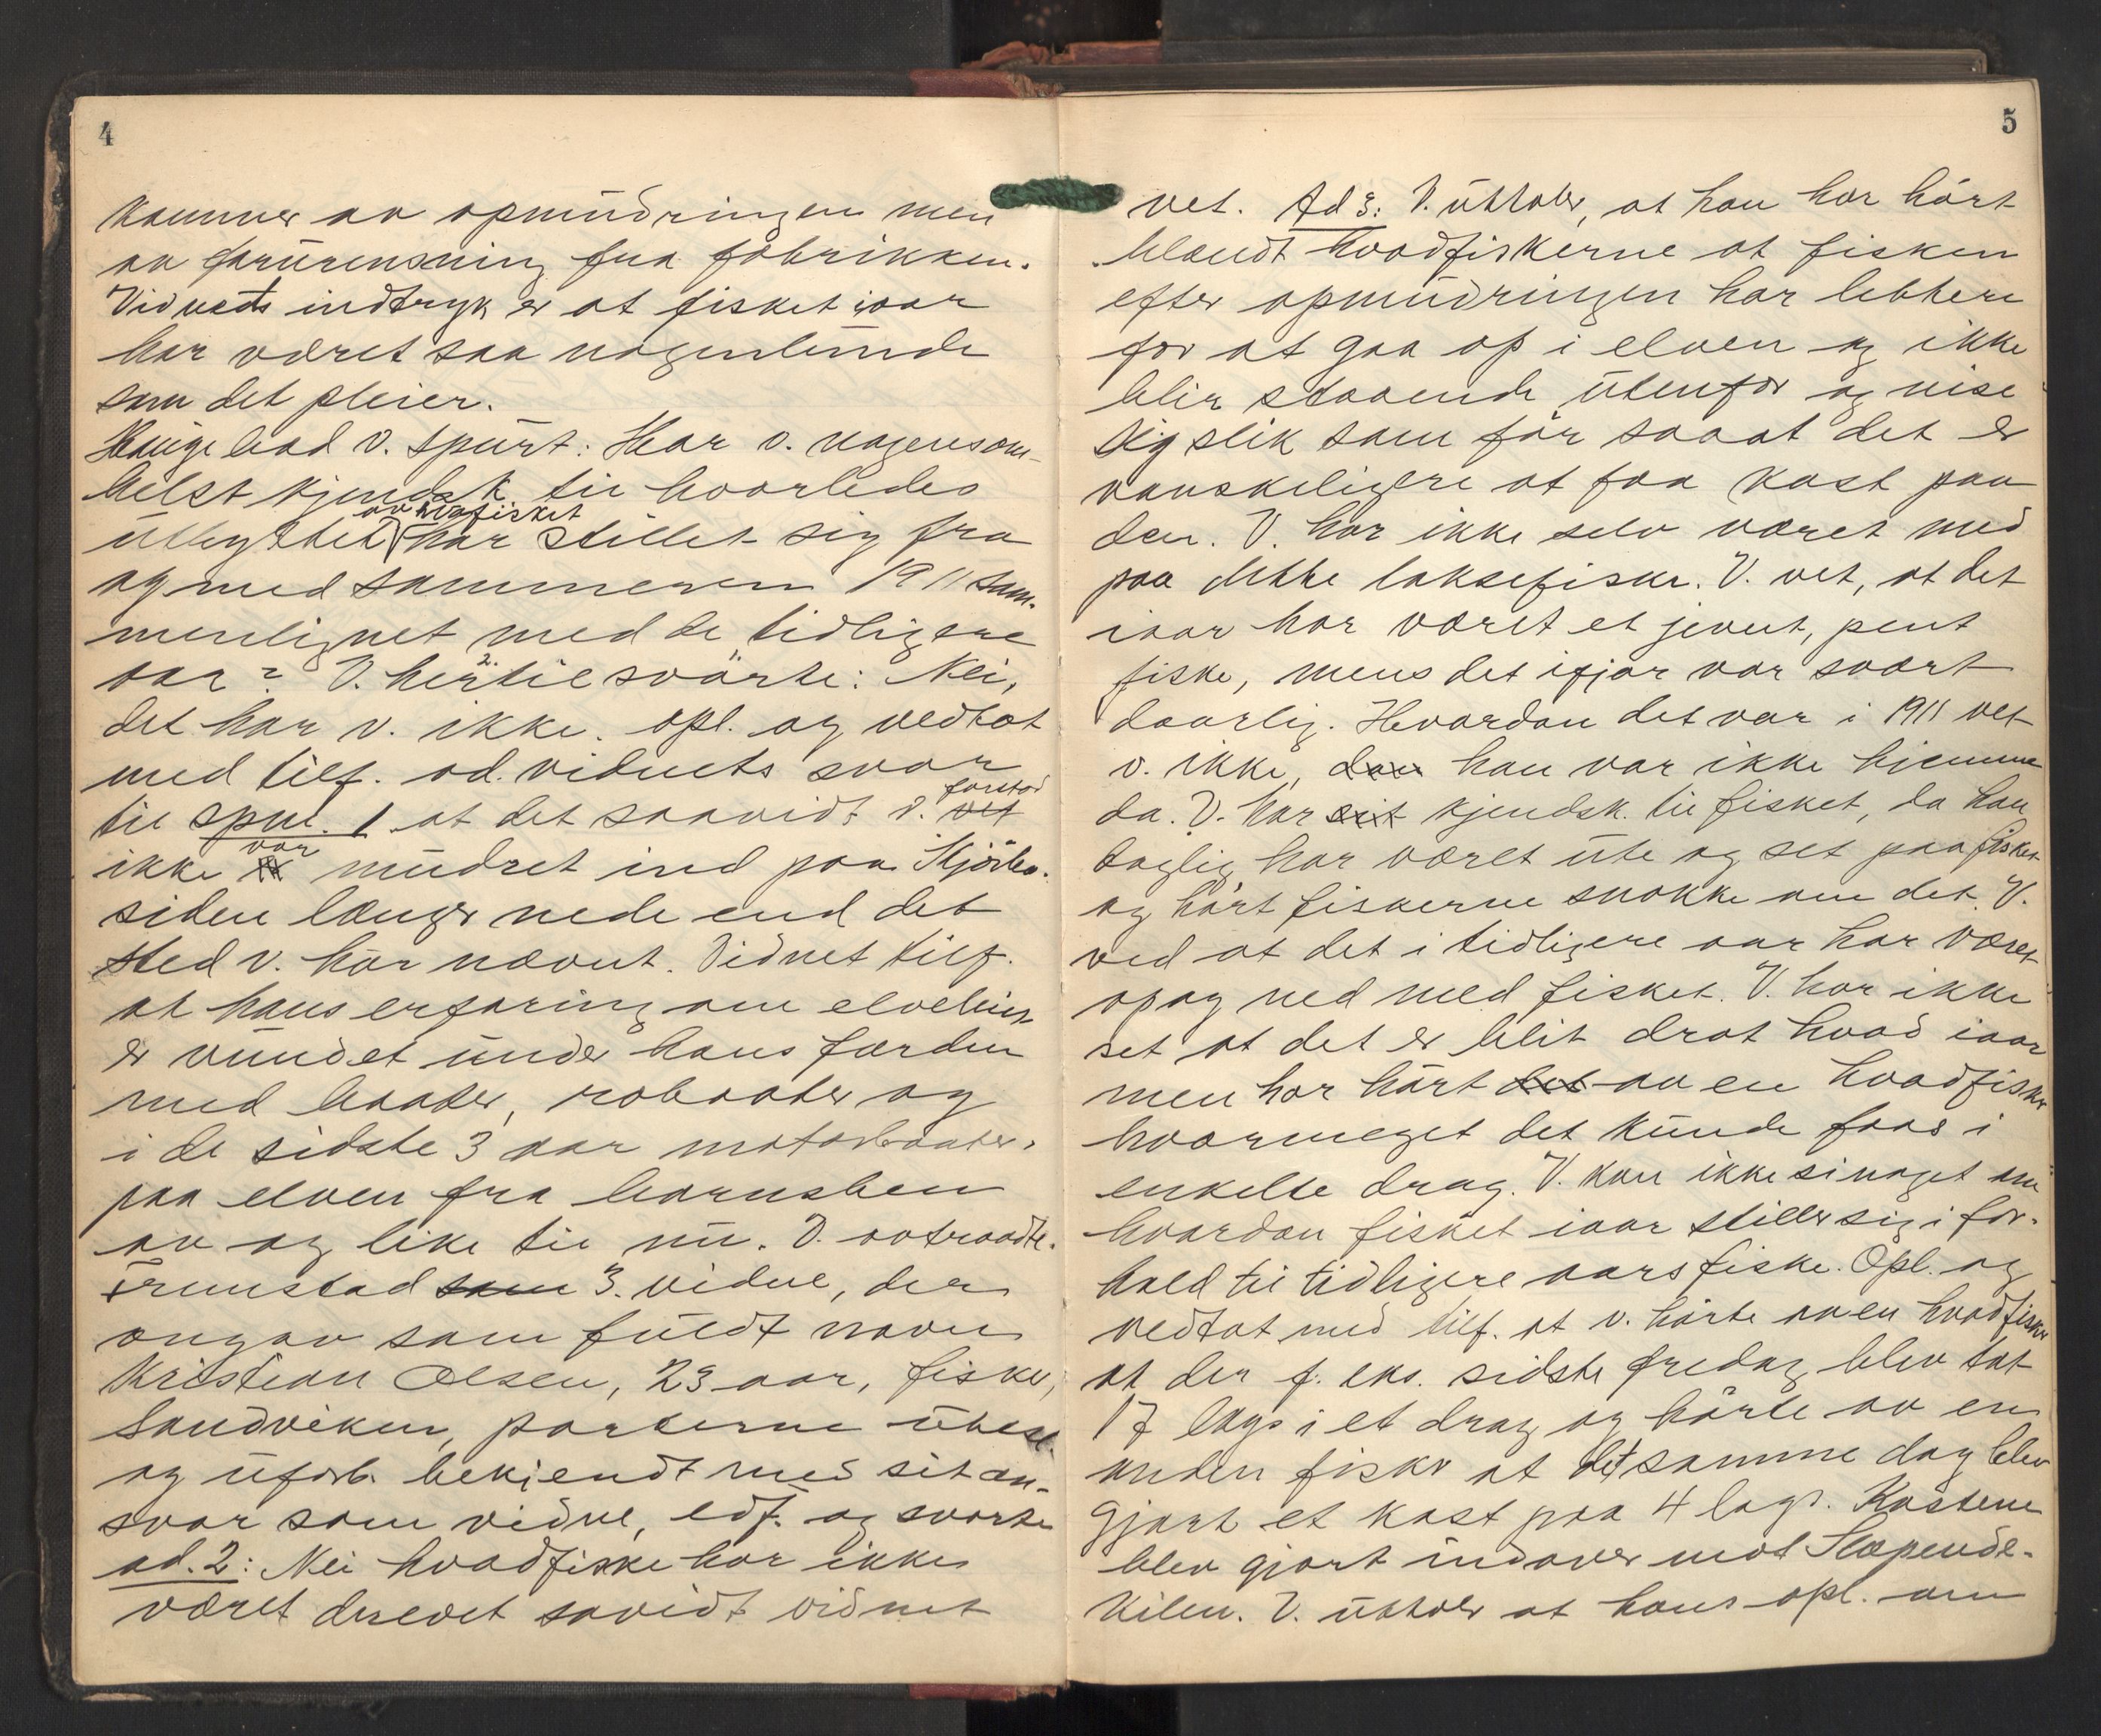 4
kommer av opmudringen men
av forurensning fra fabrikken.
Vidnets indtryk er at fisket iaar
har været saa nogenlunde
som det pleier.
Hauge bad v. spurt: Har v. nogensom-
helst kjendsk. til hvorledes
av hvafisket
utbyttet har stillet sig fra
og med sommeren 1911 sam-
menlignet med de tidligere
aar? V. hertil svarte: Nei,
det har v. ikke. opl. og vedtat
med tilf. ad. vidnets svar
forstod
til spm. 1 at det saavidt v. vet
var
ikke er mudret ind paa Kjørbo-
siden længer nede end det
sted v. har nævnt. Vidnet tilf.
at hans erfaring om elveleiet
er vundet under hans færden
med baater, robaater og
i de sidste 3 aar motorbaater,
paa elven fra barnsben
av og like til nu. V. aatraadte.
Grunstad som 3. vidne, der
angav som fuldt navn
Kristian Olsen, 23 aar, fisker,
Sandviken, parterne ubesl.
og uforb. bekjendt med sit an-
svar som vidne, edf. og svarte
ad. 2: Nei hvadfiske har ikke
været drevet savidt vidnet
5
vet. Ad 3: V. uttaler, at han har hørt
blandt hvadfiskerne at fisken
efter opmudringen har lettere
for at gaa op i elven og ikke
blir staaende utenfor og vise
sig slik som før saaat det er
vanskeligere at faa kast paa
den. V. har ikke selv været med
paa dette laksefiske. V. vet, at det
iaar har været et jevnt, pent
fiske, mens det ifjor var svært
daarlig. Hvordan det var i 1911 vet
v. ikke, dan han var ikke hjemme
da. V. har sit kjendsk. til fisket, da han
daglig har været ute og set paa fisket
og hørt fiskerne snakke om det. V.
ved at det i tidligere aar har været
op og ned med fisket. V. har ikke
set at det er blit drat hvad iaar
men har hørt det av en hvadfisker
hvormeget det kunde faas i
enkelte drag. V. kan ikke si noget om
hvordan fisket iaar stiller sig i for-
hold til tidligere aars fiske. Opl. og
vedtat med tilf. at v. hørte av en hvadfisker
at der f. eks. sidste fredag blev tat
17 laks i et drag og hørte av en
anden fisker at det samme dag blev
gjort et kast paa 4 laks. Kastene
blev gjort indover mot Slæpende-
kilen. V. uttaler at hans opl. om